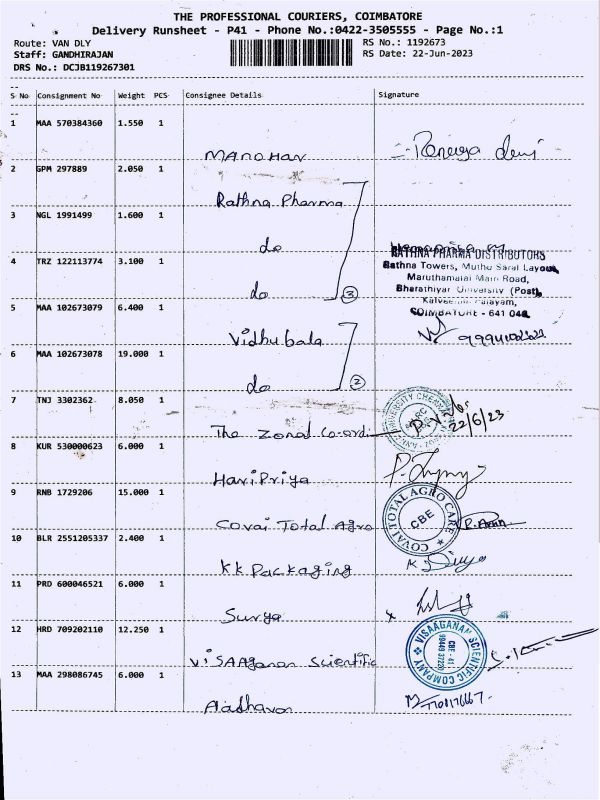 THE PROFESSIONAL COURIERS, COIMBATORE
Delivery Runsheet - P41 - Phone No.:0422-3505555 - Page No.:1
Route: VAN DLY
RS No.: 1192673
Staff: GANDHIRAJAN
RS Date: 22-Jun-2023
DRS No.: DCJB119267301
S No Consignment No Weight PCS Consignee Details Signature
1 MAA 570384360 1.550 1
Manohar
2 GPM 297889 2.050 1
Rathna Pharma
3 NGL 1991499 1.600 1
do
RATHNA PHARMA DISTRIBUTORS
4 TRZ 122113774 3.100 1
Rathna Towers, Muthu Saral Layout,
Maruthamalai Main Road,
do 3
Bharathiyar University (Post),
5 MAA 102673079 6.400 1
COIMBATORE - 641 046.
Vidhubala
6 MAA 102673078 19.000 1
do 2
7 TNJ 3302362 8.050 1
The Zonal Co-ordi
22/6/23
8 KUR 530000623 6.000 1
HariPriya
9 RNB 1729206 15.000 1
Covai Total Agro
COVAI TOTAL AGRO CARE
CBE
10 BLR 2551205337 2.400 1
KK Packaging
11 PRD 600046521 6.000 1
Surya
12 HRD 709202110 12.250 1
ViSAAganan Scientific
VISAAGANAN SCIENTIFIC COMPANY
CBE - 41
13 MAA 298086745 6.000 1
Aadhavan